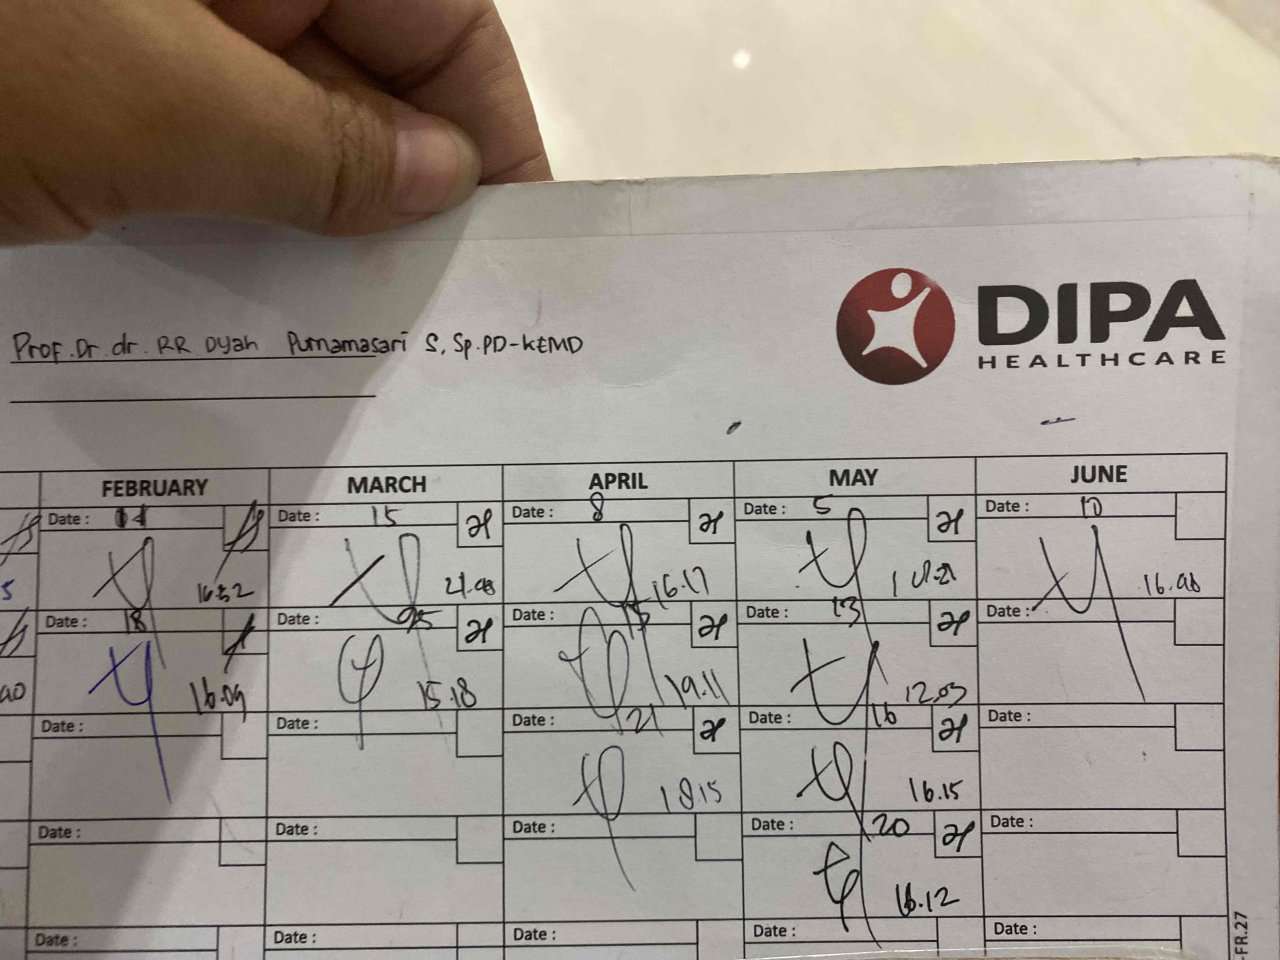 DIPA
HEALTHCARE
Prof. Dr. dr. RR Dyah Purnamasari S, Sp.PD-KEMD
FEBRUARY MARCH APRIL MAY JUNE
Date : Date : 15 Date : 8 Date : 5 Date : 10
5 16.17
Date : 18 Date : Date : 15 Date : 13 Date :
16.09 15.18 19.11 12.03
Date : Date : Date : 21 Date : 16 Date :
16.15
Date : Date : Date : Date : 20 Date :
16.12
Date : Date : Date : Date : Date :
-FR.27